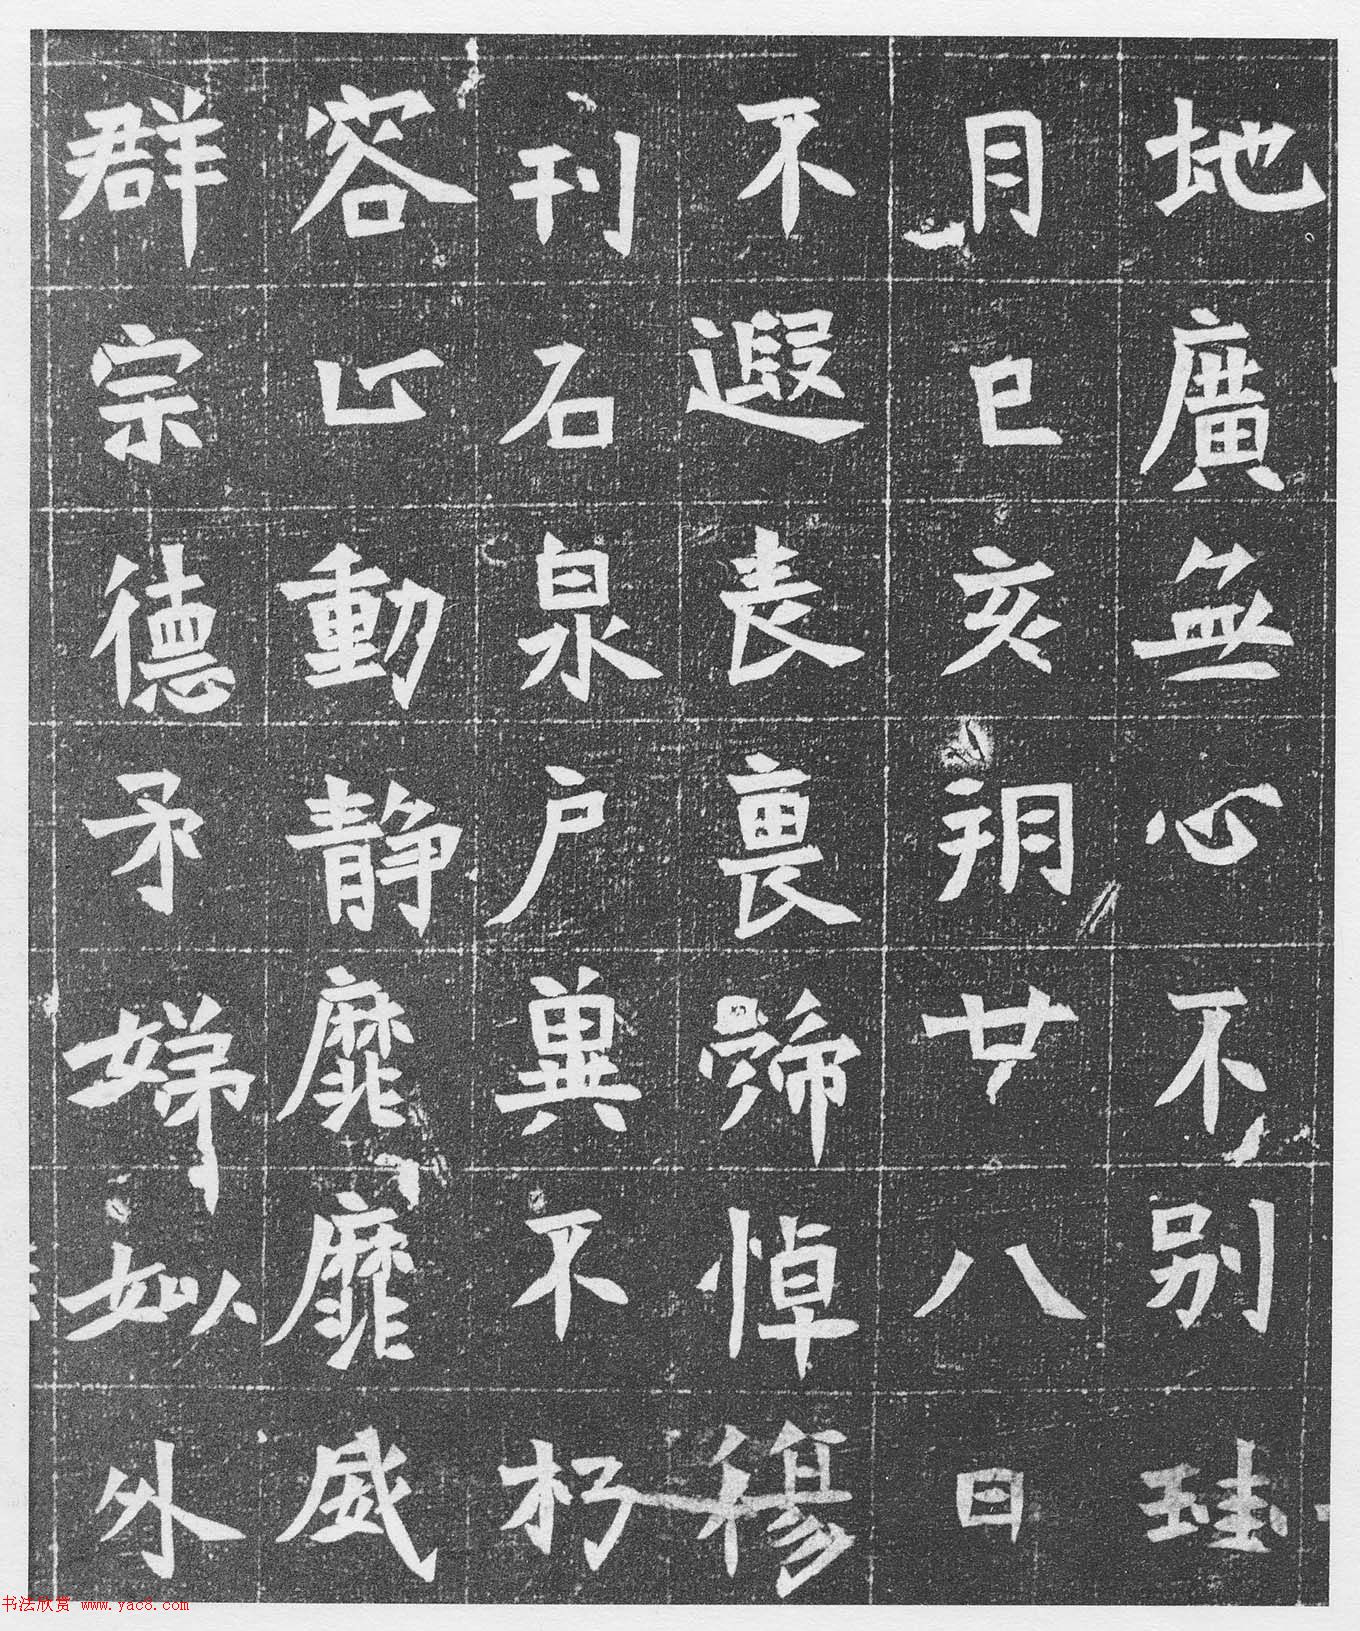 地廣無心不别珪
月己亥朔廿八日
不遐表裏歸悼穆
刊石泉户冀不朽
容止動静靡靡
群宗德矛娣姒外
书法欣赏 www.yac8.com